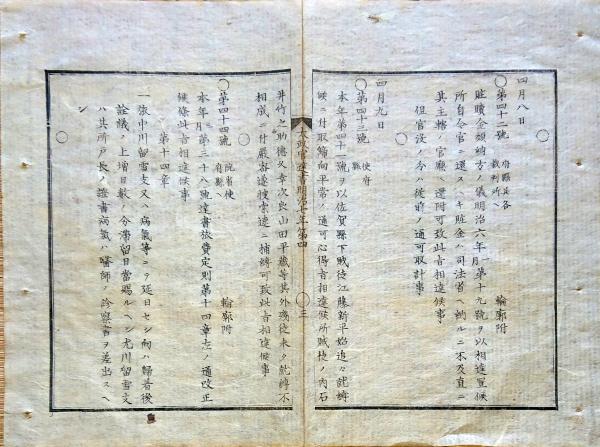 四月八日
○第四十二號 府縣並各裁判所ヘ 輪廓附
贓贖金領納方ノ儀明治六年一月第十九號ヲ以相達置候
所自今官ニ還スヘキ贓金ハ司法省ヘ納ルニ不及直ニ
其主轄ノ官廳ヘ還附可致此旨相達候事
但官沒ノ分ハ從前ノ通可取計事
四月九日
○第四十三號 使府縣
本年第四十一號ヲ以佐賀縣下賊徒江藤新平始追々就縛
候ニ付取締向平常ノ通可心得旨相達候所賊徒ノ內石
太政官達書明治七年第四
○三
井竹之助德久幸次郎山田平藏等其外殘徒未タ就縛不
相成ニ付嚴密遂搜索速ニ捕縛可致此旨相達候事
○第四十四號 院省使府縣ヘ 輪廓附
本年月第三十八號達書旅費定則第十四章左ノ通改正
候條此旨相達候事
第十四章
一 旅中川留雪支又ハ病氣等ニテ延日セシ向ハ歸着後
詮議ノ上增日數ノ分滯留日當賜ルヘシ尤川留雪支
ハ其所戶長ノ證書病氣ハ醫師ノ診察書ヲ差出スヘ
シ